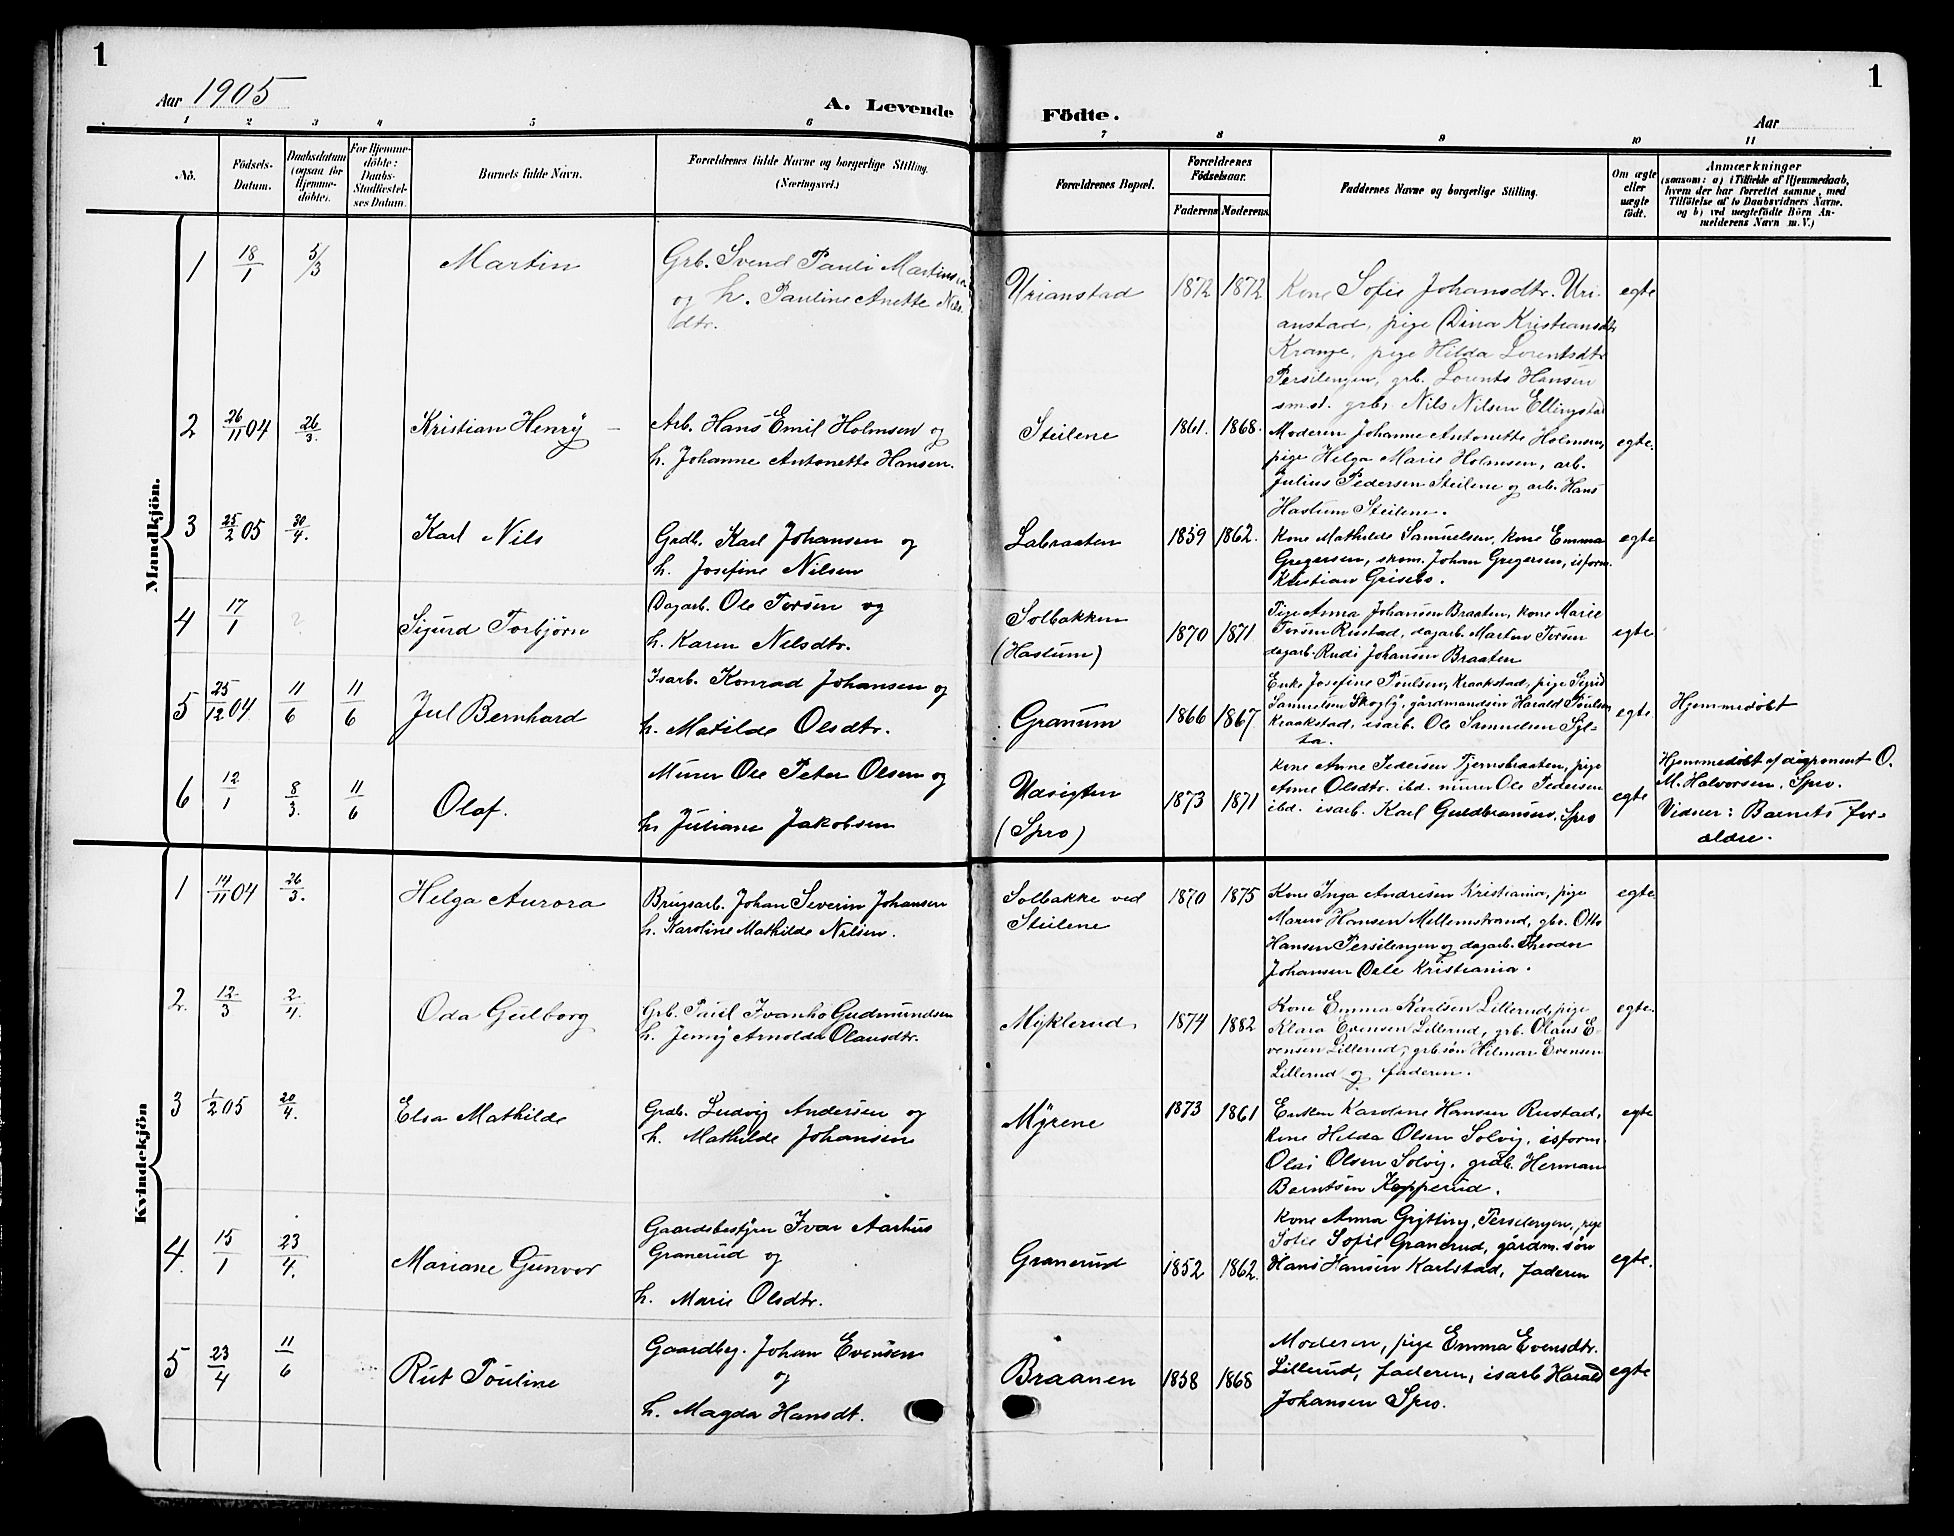 1
1
Aar 1905
A. Levende
Födte.
Aar
1 2 3 4 5 6 7 8 9 10 11
No.
Födsels-
Datum.
Daabsdatum
(ogsaa for
Hjemme-
döbte).
For Hjemme-
döbte:
Daabs-
Stadfæstel-
ses Datum.
Barnets fulde Navn.
Forældrenes fulde Navne og borgerlige Stilling.
(Næringsvei.)
Forældrenes Bopæl.
Forældrenes
Födselsaar.
Faderens Moderens.
Faddernes Navne og borgerlige Stilling.
Om ægte
eller
uægte
födt.
Anmærkninger
(saasom: a) i Tilfælde af Hjemmedaab,
hvem der har forrettet samme, med
Tilföielse af to Daabsvidners Navne.
og b) ved uægtefödte Börn An-
melderens Navn m. V.)
Mandkjön.
1 18/1 5/3 Martin
Grb. Svend Pauli
og h. Pauline Anette
dtr.
Urianstad 1872 1872
Kone Sofie Johansdtr. Uri-
anstad, pige Dina Kristiansdtr
Krange, pige Hilda Lorentsdtr
Persilengen, grb. Lorents Hansen
sm.st. grbr. Nils Nilsen Ellingstad
egte
2 26/11 04 26/3. Kristian Henry
Arb. Hans Emil Holmsen og
h. Johanne Antonette Hansen.
Steilene 1861. 1868.
Moderen Johanne Antonette Holmsen,
pige Helga Marie Holmsen, arb.
Julius Pedersen Steilene og arb. Hans
Hastum Steilene.
egte.
3 25/2 05 30/4. Karl Nils
Grdb. Karl Johansen og
h. Josefine Nilsen
Labraaten 1859 1862.
Kone Mathilde Samuelsen, kone Emma
Gregersen, skom. Johan Gregersen, isform.
Kristian Grisebo.
egte
4 17/1 Sigurd Torbjørn
Dagarb. Ole Torsen og
h. Karen Nilsdtr.
Solbakken
(Hastum)
1870 1871
Pige Anna Johansen Braaten, kone Marie
Torsen Rustad, dagarb. Martin Torsen
dagarb. Rudi Johansen Braaten
egte
5 25/12 04 11/6 11/6 Jul Bernhard
Isarb. Konrad Johansen og
h. Matilde Olsdtr.
Granum 1866 1867.
Enke Josefine Poulsen, Kraakstad, pige Sigrid
Samuelsen Skogly, gårdmandsøn Harald Poulsen
Kraakstad, isarb. Ole Samuelsen Syl-
ta.
egte.
Hjemmedøbt
6 12/1 8/3. 11/6 Olaf.
Murer Ole Peter Olsen og
h. Juliane Jakobsen
Udsigten
(Spro)
1873 1871
Kone Anne Pedersen Tjernsbraaten, pige
Anne Olsdtr. ibd. murer Ole Pedersen
ibd. isarb. Karl Guldbransen, Spro
egte
Hjemmedøbt af O.
M. Halvorsen, Spro.
Vidner: Barnets for-
ældre.
Kvindekjön
1 14/11 04 26/3. Helga Aurora
Brugsarb. Johan Severin Johansen
h. Karoline Mathilde Nilsen.
Solbakke ved
Steilene
1870 1875
Kone Inga Andresen Kristiania, pige
Maren Hansen Mellemstrand, gbr. Otto
Hansen Persilengen og dagarb. Theodor
Johansen Oslo Kristiania.
egte.
2. 12/3 2/4. Oda Gulborg
Grb. Paul Ivanho Gudmundsen
h. Jenny Arnolda Olausdtr.
Myklerud 1874 1882
Kone Emma Karlsen Lillerud, pige
Klara Evensen Lillerud, grb. Olaus E-
vensen Lillerud, grbsøn Hilmar Evensen
Lillerud og faderen.
egte.
3 1/2 05 20/4. Elsa Mathilde
Grdb. Ludvig Andersen og
h. Mathilde Johansen
Myrene 1873 1861
Enken Karoline Hansen Rustad,
kone Hilda Olsen Solvig, isform.
Olai Olsen Solvig, grdb. Herman
Berntsen Kopperud.
egte
4. 15/1 23/4. Mariane Gunvor
Gaardsbestyrer Ivar Aarhus
Granerud og
h. Marie Olsdtr.
Granerud 1852 1862.
Kone Anna Grytting, Persilengen, pige
Sofie Sofie Granerud, gårdm. søn
Hans Hansen Karlstad, faderen
egte.
5 23/4 11/6 Rut Pouline
Gaardbg. Johan Evensen
og
h. Magda Hansdt.
Braanen 1858 1868
Moderen, pige Emma Evensdtr.
Lillerud, faderen, isarb Harald
Johansen Spro.
egte